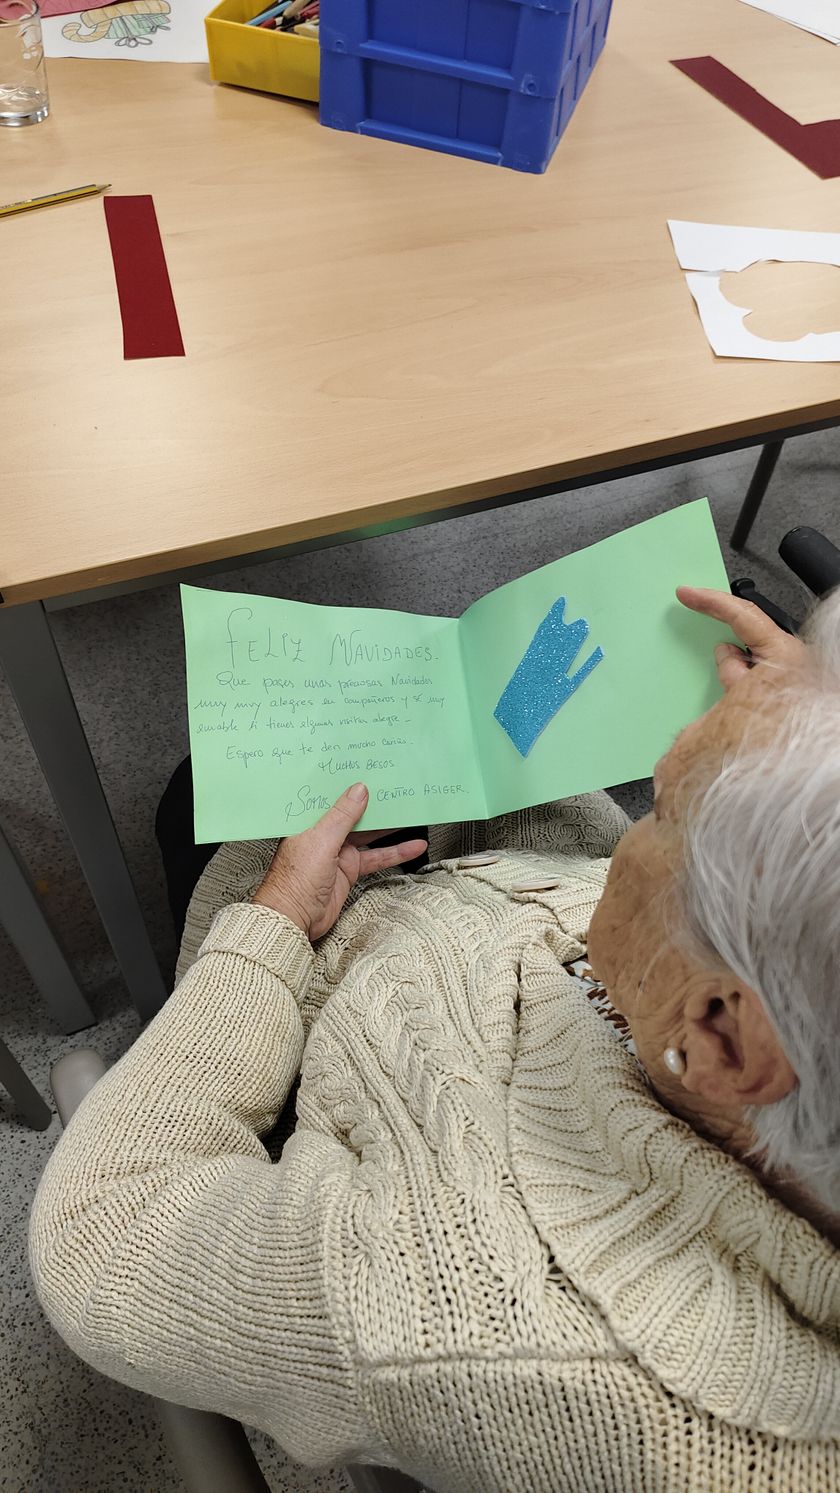 FELIZ NAVIDADES.
Que pases unas preciosas Navidades
muy muy alegres en compañeros y sé muy
amable si tienes algunas visitas alegre.
Espero que te den mucho cariño.
MUCHOS BESOS
Somos CENTRO ASIGER.